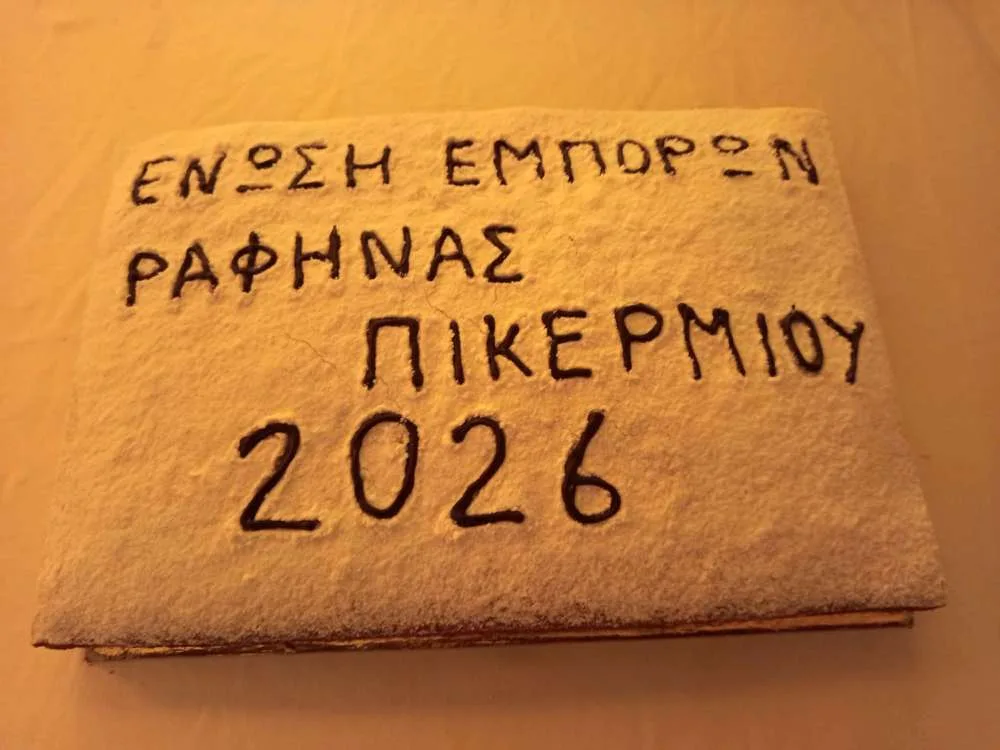 ΕΝΩΣΗ ΕΜΠΟΡΩΝ
ΡΑΦΗΝΑΣ
ΠΙΚΕΡΜΙΟΥ
2026